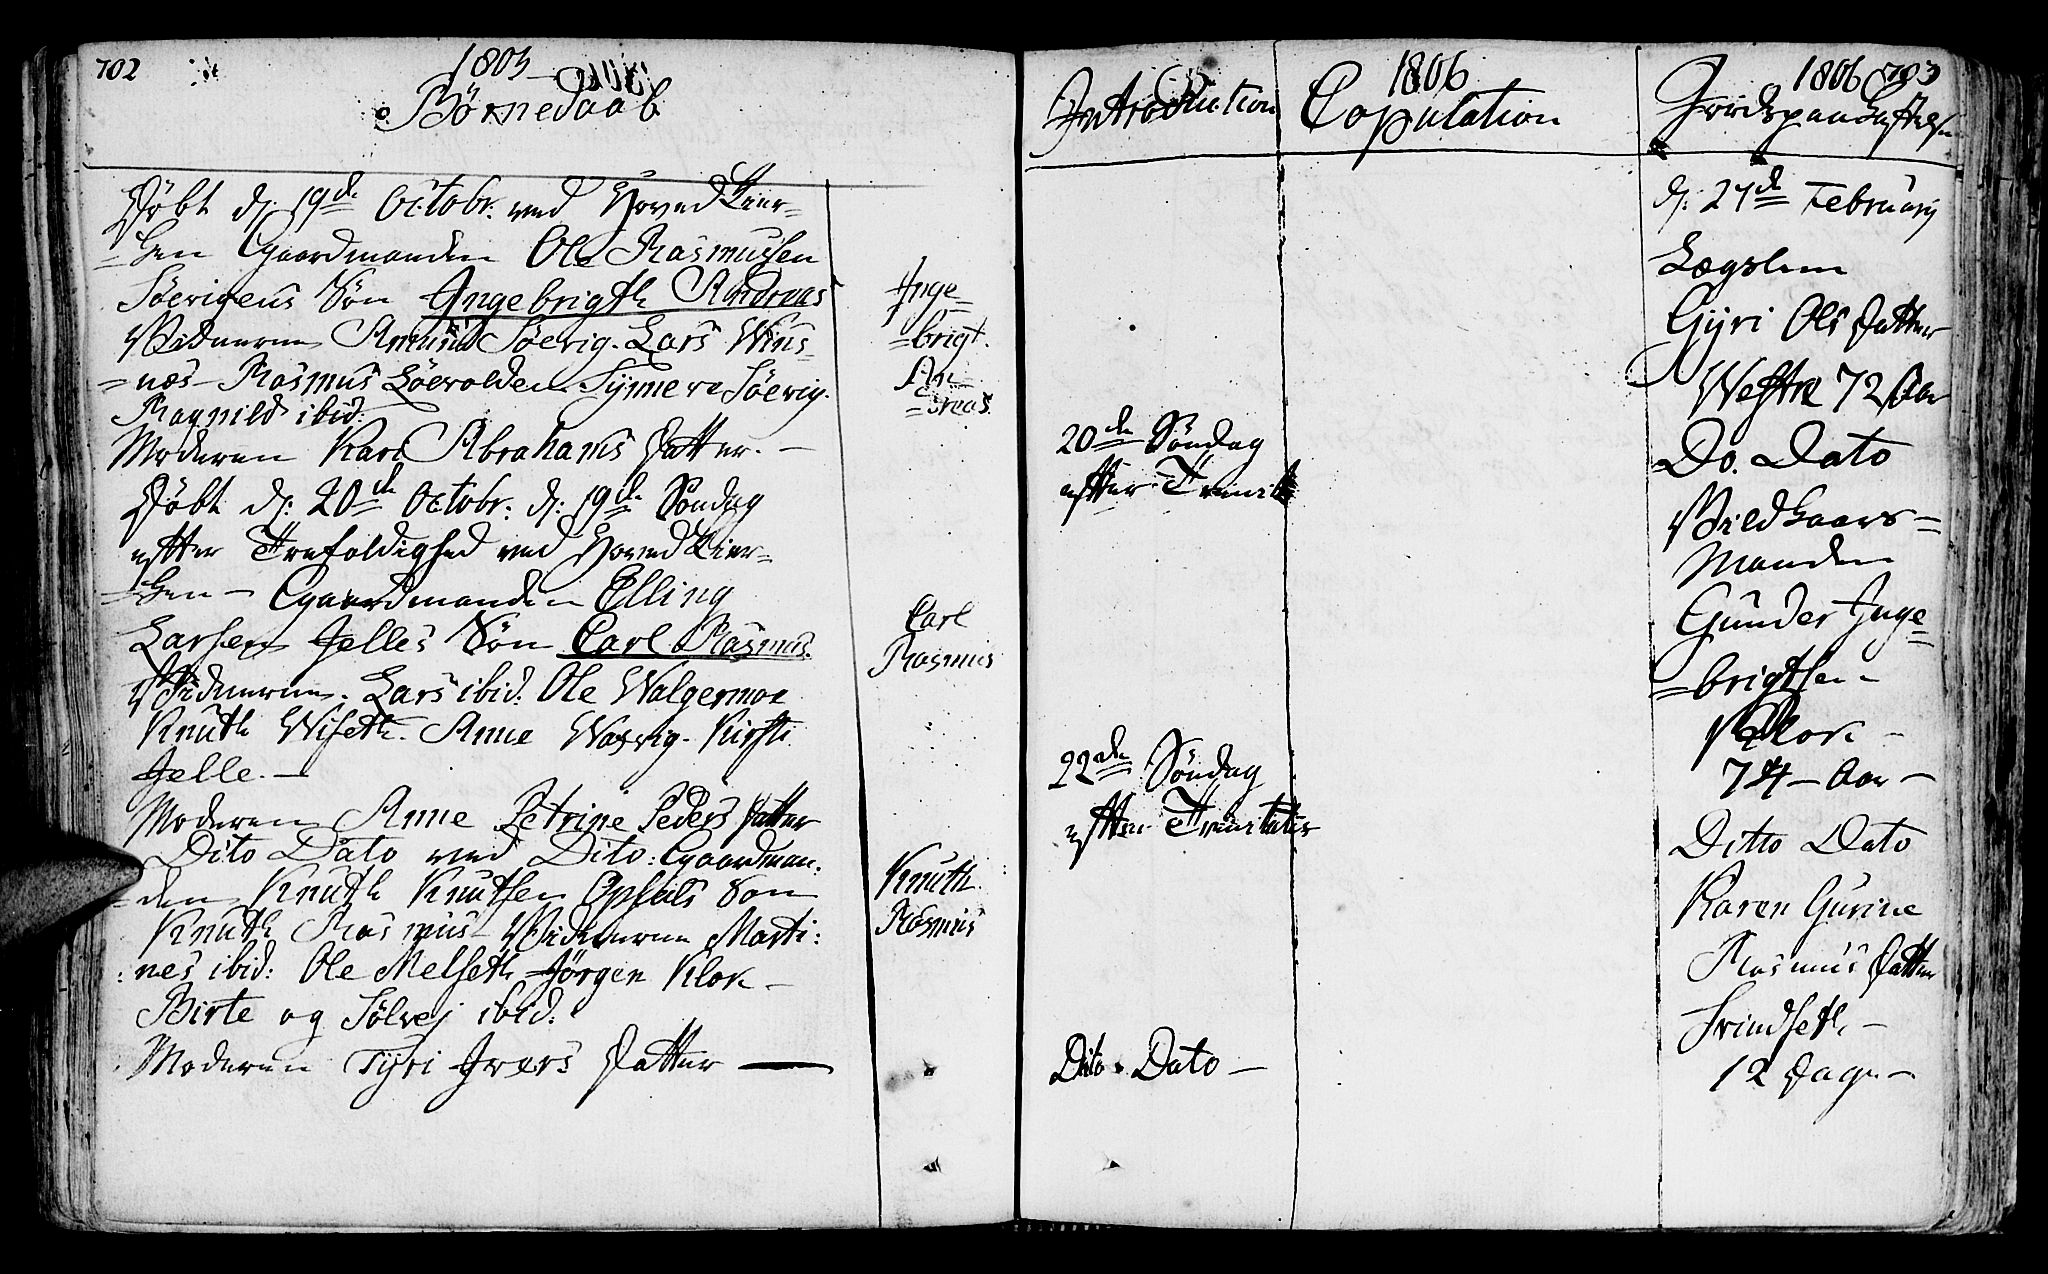 702
1805
Børnedaab
Døbt d: 19de Octobr. ved Hoved Kier-
=ken Gaardmanden Ole Rasmussen
Söevigens Sön Ingebrigth Andreas
Vidnerne Amund Söevig. Lars Wiis-
=næs - Rasmus Löevolden Synneve Söevig.
Ragnild ibid:
Moderen Kari Abrahams Datter. -
Døbt d: 20de Octobr: d: 19de Söndag
efter Trefoldighed ved Hoved Kier=
=ken - Gaardmanden Elling
Larsen Jelles Sön Carl Rasmus.
Vidnerne. Lars ibid: Ole Walgermoe
Knuth Wiseth. Anne Kirsti
Jelle. -
Moderen Anne Petrine Peders Datter
Dito Dato ved Dito: Gaardman:
=den Knuth Knutsen Opsals Son
Knuth Rasmus Vidnerne Marti:
:nes ibid: Ole Melseth Jörgen Klok -
Birte og Sölvej ibid:
Moderen Tyri Ivers Datter -
Inge=
=brigt.
An=
=dreas.
Carl
Rasmus
Knuth
Rasmus
Introduction
20de Söndag
efter Trinit
22de Söndag
efter Trinitatis
Dito Dato -
1806
Copulation
1806 703
Jordspaakastelse
d: 27de February
Lægslem
Gyri Ols Datter
Westre 72 Aar
Do. Dato
Vilkaars=
Manden
Gunder Inge=
=brigtsen
Klok -
74 - Aar -
Ditto Dato
Karen Gurine
Rasmus Datter
Frindseth -
12 Dage -